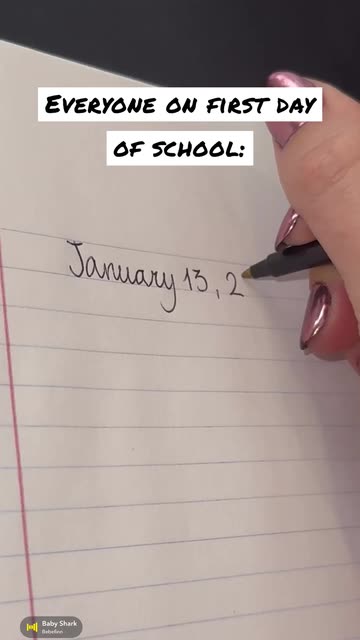 EVERYONE ON FIRST DAY
OF SCHOOL:
January 13, 2
Baby Shark
Bebellon